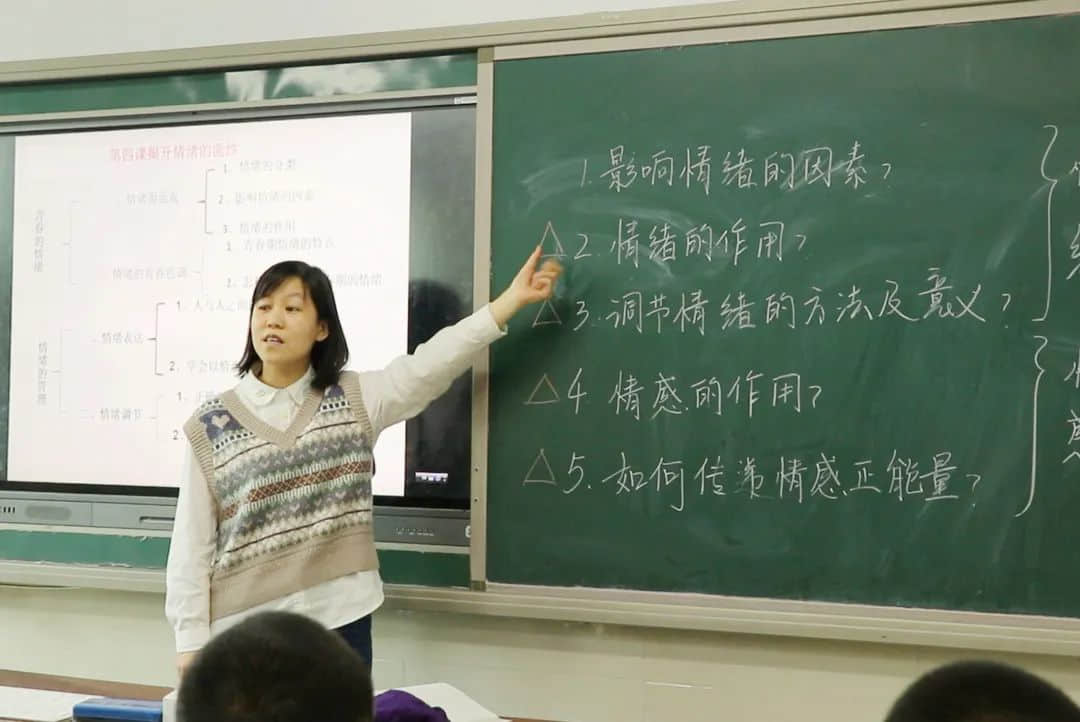 第四课揭开情绪的面纱
青春的情绪
1、情绪的分类
2、影响情绪的因素
3、情绪的作用
情绪的青春色调
1、青春期情绪的特点
期的情绪
情绪的管理
一、情绪表达
1、人与人之间
2、学会以
二、情绪调节
1、
2、
1.影响情绪的因素?
△2.情绪的作用?
△3.调节情绪的方法及意义?
△4 情感的作用?
△5.如何传递情感正能量?